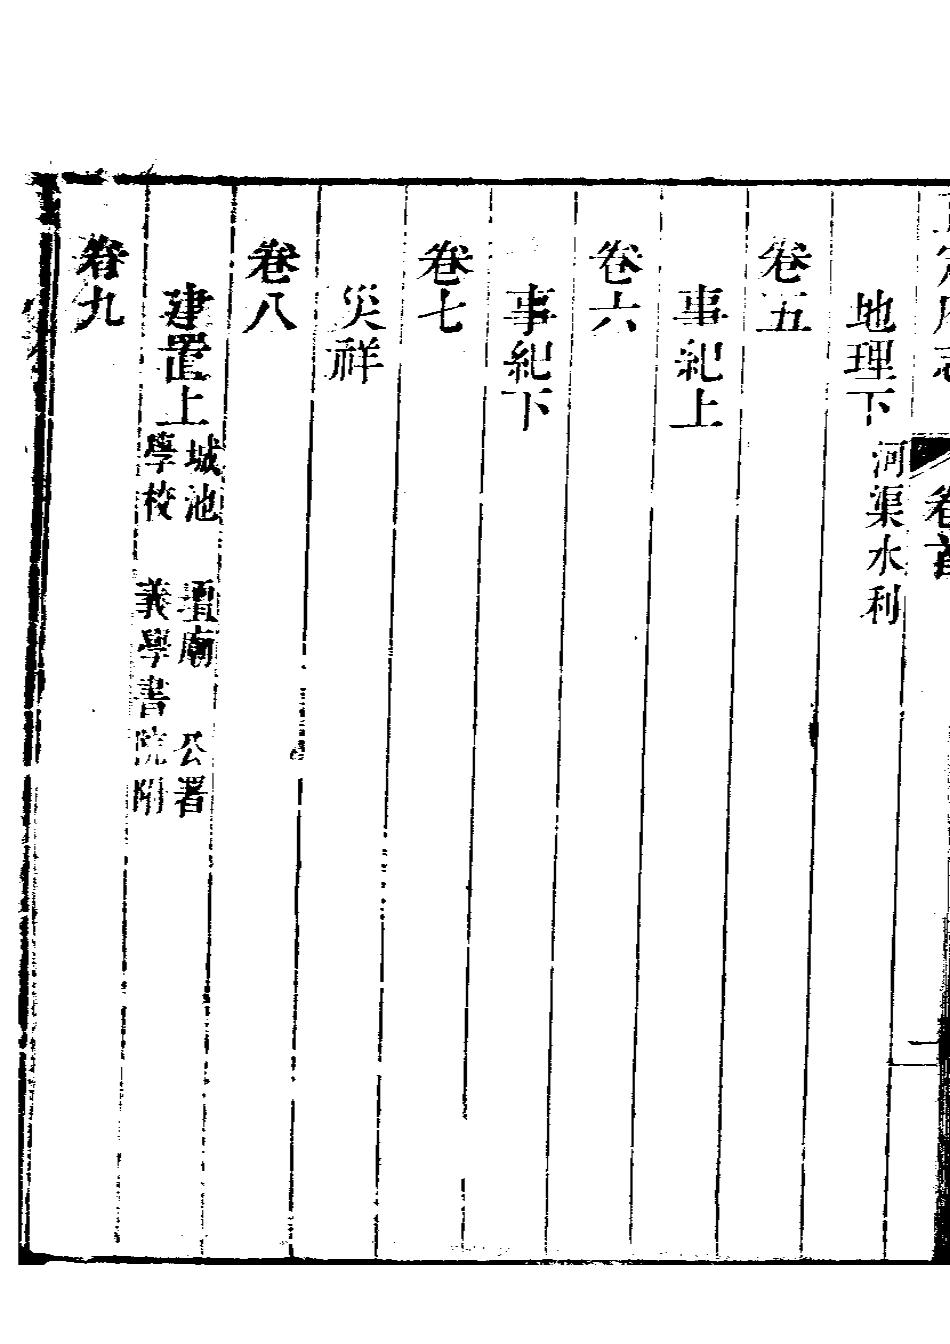 定府志 卷首 二
地理下 河渠水利
卷五
事紀上
卷六
事紀下
卷七
災祥
卷八
建置上 城池 壇廟 公署
學校 義學書院附
卷九